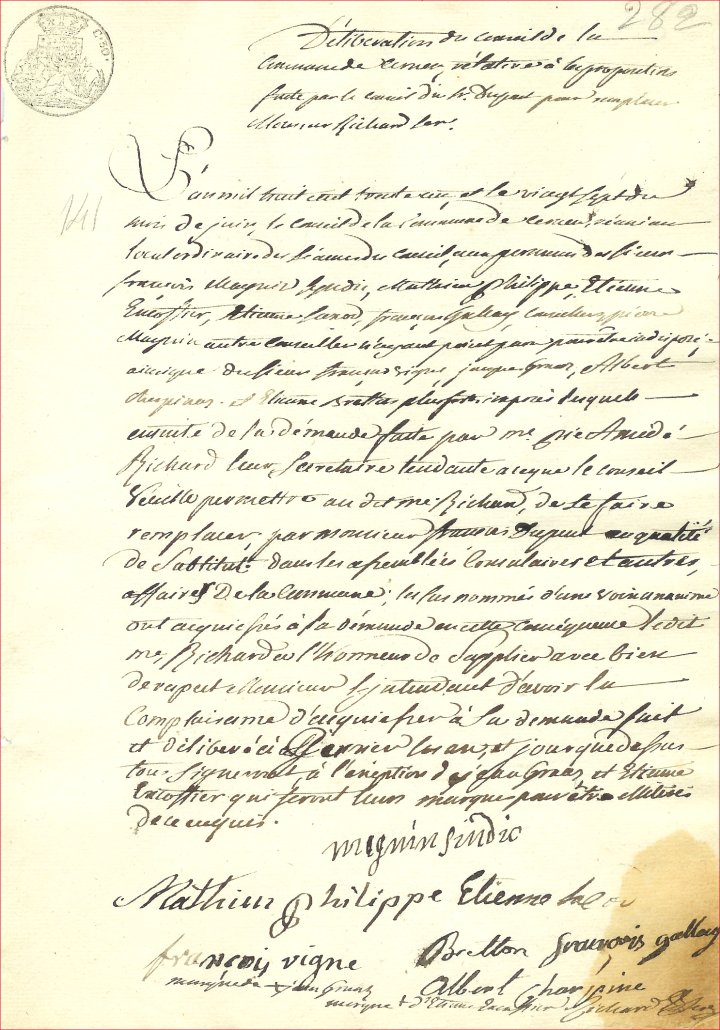 282
C. 50.
Déliberation du conseil de la
Commune de Cernex, rélative à la proposition
faite par le conseil du Sr. Dupont pour remplacer
Monsieur Richard Ser.
141
L'an mil huit cent trente un et le vingt sept du
mois de juin, le conseil de la Commune de Cernex, réuni au
local ordinaire des séances du conseil, aux personnes des sieurs
françois Magnin Syndic, Mathieu Philippe, Etienne
Encossier, Etienne françois Gallay Conseillers, pierre
Magnin autre Conseiller n'ayant point paru pour être indisposé,
ainsique des sieurs françois vigne Albert
Charpine et Etienne Bretton plus forts imposés lesquels
ensuite de la démande faite par me. Amedé
Richard leur Secretaire tendante aceque le conseil
Veuille permettre au dit me. Richard, de se faire
remplacer, par monsieur françois Dupont en qualité
de Sabtitut dans les assemblées Consulaires et autres
affaires De la Commune; les sus nommés d'une voix unanime
ont acquiessés à sa démande en cette conséquence le dit
me. Richard a l'honneur de Supplier avec bien
de respect Monsieur L'jntendant d'avoir la
Complaisance d'acquiesser à sa demande fait
et déliberé à Cernex les an, et jour que dessus
tous signeront, à l'éxéption de et Etienne
Encossier qui feront leurs marques pour être illitérés
de ce enquis.
magnin sindic
Mathieu Philippe Etienne
françois vigne Bretton françois gallay
marque de + Albert Charpine
marque + d'Etienne Encossier Richard